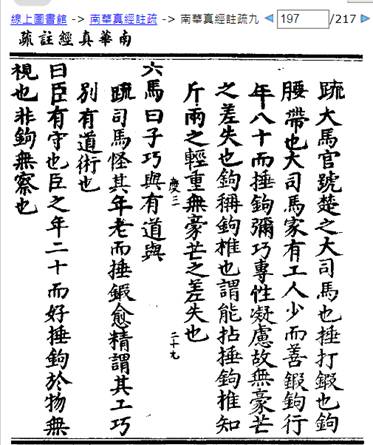 線上圖書館 -> 南華真經註疏 -> 南華真經註疏九 197 /217
南華真經註疏
疏大馬官號楚之大司馬也捶打鍛也鉤
腰帶也大司馬家有工人少而善鍛鉤行
年八十而捶鉤彌巧專性凝慮故無豪芒
之差失也鉤稱鉤權也謂能拈捶鉤權知
斤兩之輕重無豪芒之差失也
慶三
二十九
大馬曰子巧與有道與
疏司馬怪其年老而捶鍛愈精謂其工巧
別有道術也
曰臣有守也臣之年二十而好捶鉤於物無
視也非鉤無察也